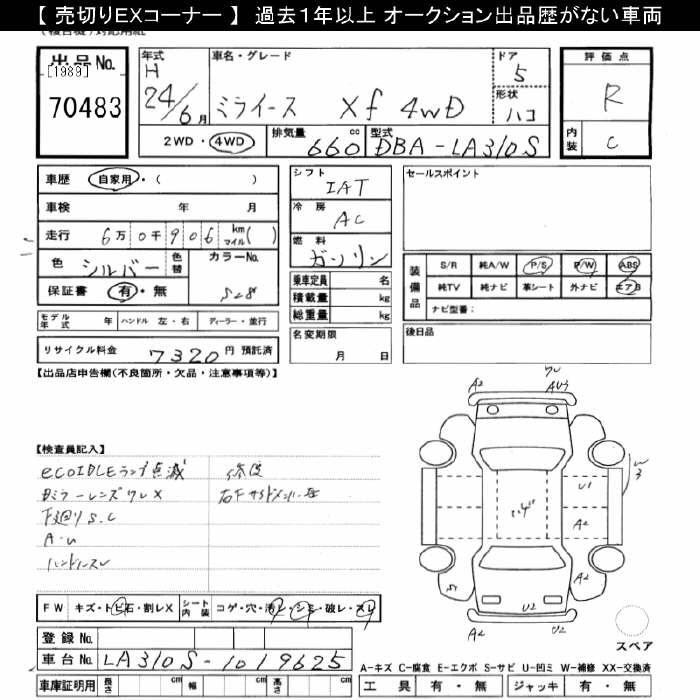 【 売切りEXコーナー 】 過去1年以上 オークション出品歴がない車両
出品No.
[1989]
70483
年式 車名・グレード ドア
H 24/6月 ミライース Xf 4WD 5
形状
ハコ
2WD・4WD 排気量 660 cc 型式 DBA-LA310S
評価点
R
内装 C
車歴 自家用・( )
車検 年 月
走行 6万0千906 km マイル( )
色 シルバー 色替 カラーNo. S28
保証書 有・無
モデル年式 年 ハンドル 左・右 ディーラー・並行
リサイクル料金 7320 円 預託済
シフト
IAT
冷房
AC
燃料
ガソリン
乗車定員 名
積載量 kg
総重量 kg
名変期限
月 日
セールスポイント
装備品
S/R 純A/W P/S P/W ABS
純TV 純ナビ 革シート 外ナビ エアB
ナビ型番:
後日品
【出品店申告欄(不良箇所・欠品・注意事項等)】
【検査員記入】
ecoIDLEランプ点滅
Dミラーレンズワレ X
下廻りS.C
A・U
ハンドルスレ
修復
A2
AU3
W3
U1
A2
A2
S1
A2
U2
U2
スペア
FW キズ・トビ石・割レX シート内装 コゲ・穴・汚レ・シミ・破レ・スレ
登録No.
車台No. LA310S-1019625
車庫証明用 長さ cm 幅 cm 高さ cm
A-キズ C-腐食 E-エクボ S-サビ U-凹ミ W-補修 XX-交換済
工具 有・無 ジャッキ 有・無